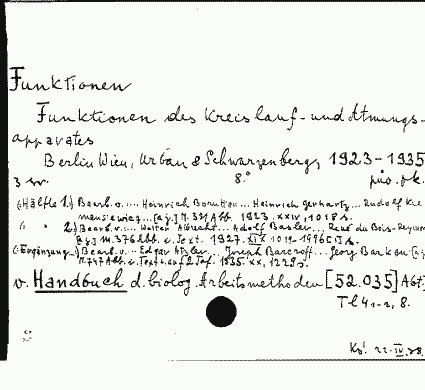 Funktionen
Funktionen des Kreislauf- und Atmungs-
apparates
Berlin Wien, Urban & Schwarzenberg, 1923-1935
3 sv. 8.° püv. fk.
(Hälfte 1.) Bearb. v. ... Heinrich Boruttau... Heinrich Gerhartz... Rudolf Kle
mensiewicz... [a j.] M. 331 Abb. 1923. XXIV, 1018 s.
" " 2.) Bearb. v. ... Walter Albrecht... Adolf Basler... René du Bois-Reymond
[a j.] M. 376 Abb. i. Text. 1927. XIX 1019-1996 [1] s.
(-Ergänzung-) Bearb. v. .. Edgar Atzler... Joseph Barcroft... Georg Barkan [a j.]
M. 747 Abb. i. Text u. auf 2 Taf. 1935. XX, 1229 s.
v. Handbuch d. biolog. Arbeitsmethoden [52.035] Abt.
Tl 4 1-2, 8.
22. IV. 38.